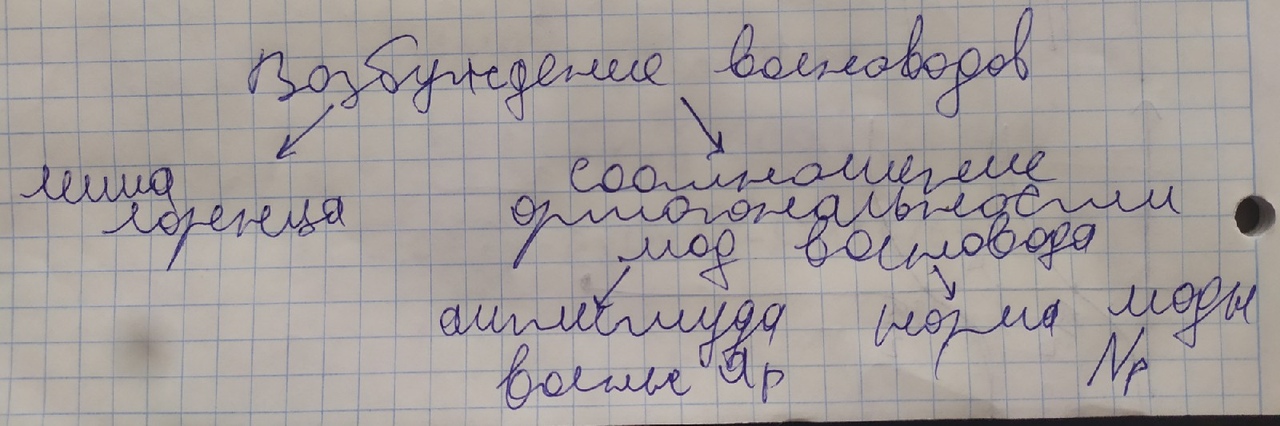 Возбуждение волноводов
лемма
лоренца
соотношение
ортогональности
мод волновода
амплитуда
волны ap
норма моды
Np